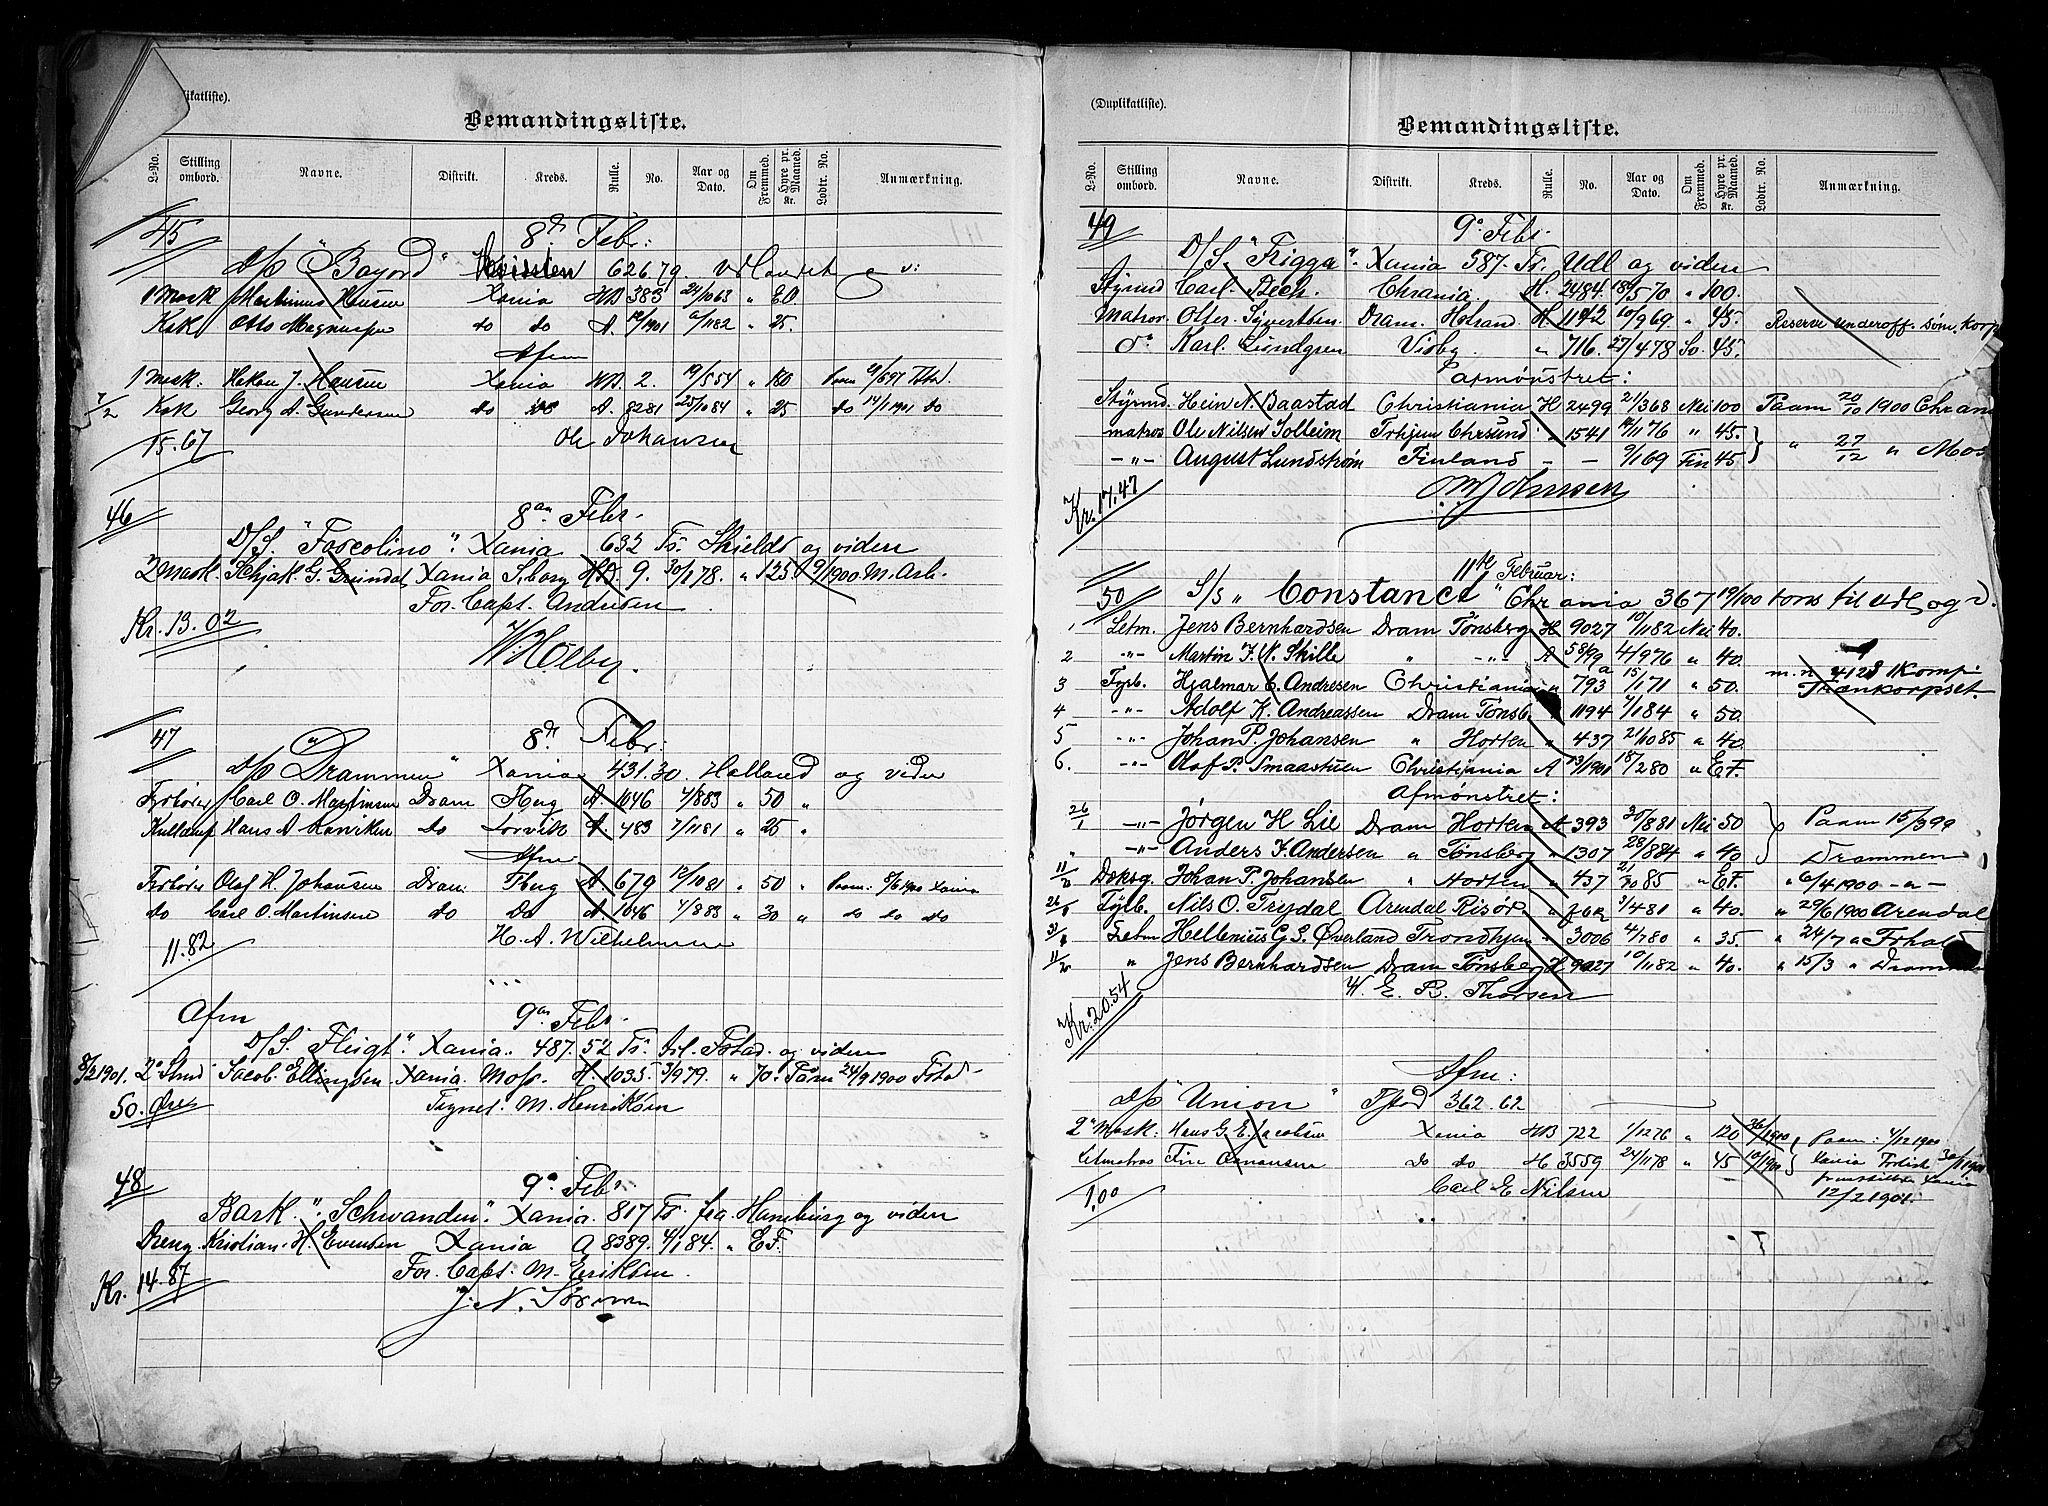 (Duplikatliste).
Bemandingsliste.
L-No. Stilling ombord. Navne. Distrikt. Kreds. Rulle. No. Aar og Dato. Om Fremmed. Hyre pr. Maaned. Kr. Lodtr. No. Anmærkning.
45 8de Febr:
626.79. Udlandet
1 Mask Martinius Hansen Xania 383 24/10 63 " EO
Kok Otto do do A. 6/11 82 " 25.
Afm
1 Mask. Hakon J. Hansen Xania 2. 19/5 54 " 180 Paam 9/6 97
7/2 Kok Georg A. Gundersen do do A. 8281 25/10 84 " 25 do 14/1 1901 do
15.67 Ole Johansen
46 8de Febr.
D/S. " " Xania 632 Ts. Shields og videre
2 Mask. G. Grindal Xania S.borg 9. 30/1 78. " 125 9/1900 M. Arb.
For Capt. Andersen
Kr. 13.02
47 8de Febr:
D/S "Drammen" Xania 431.30. Holland og videre
Fyrbøter Carl O. Martinsen Dram Fberg A. 1046 4/8 83 " 50 "
Kullemp Hans A Larvik A. 483 7/11 81 " 25 "
Afm
Fyrbøter Olaf H. Johansen Dram Fberg A 679 12/10 81 " 50 " Paam: 8/6 1900 Xania
do Carl O. Martinsen do do A 1046 4/8 83 " 30 " do do do
11.82 H. A. Wilhelmsen
Afm 9de Febr.
D/S. "Flugt". Xania. 487.52 Ts. til Fstad. og videre
8/2 1901. 2den Strmd Jacob Ellingsen Xania. Moss. H. 1035. 3/9 79. " 70. Paam 24/9 1900 Fstad
50. Øre Tegnet. M. Henriksen
48 9de Feb.
Bark. "Schwanden". Xania. 817 Ts. fra Hamburg og videre
Dreng Kristian. H. Evensen Xania A 8389. 4/1 84. " EF.
For Capt. M. Eriksen.
Kr. 14.87
(Duplikatliste).
Bemandingsliste.
L-No. Stilling ombord. Navne. Distrikt. Kreds. Rulle. No. Aar og Dato. Om Fremmed. Hyre pr. Maaned. Kr. Lodtr. No. Anmærkning.
49 9de Febr.
D/S. "Frigga". Xania 587. Ts. Udl og videre
Styrmd Carl. Bech. Chrania. H. 2484. 18/5 70 " 100.
Matros. Syvertsen. Dram. Holmstrand. H. 1142 10/9 69. " 45. Reserve underoff. søm. korps
do Karl Lundgren Visby. " 716. 27/4 78 Sv. 45.
Afmønstret:
Styrmd. Hein N. Baastad Christiania H 2499 21/3 68 Nei 100 Paam 20/10 1900 Chrania
matros Ole Nilsen Solheim Trhjem Chrsund " 1541 14/1 76 " 45. } " 27/12 " Mos
-"- August Lundstrøm Finland - - 9/1 69 Fin 45
Kr. 17.47
50 11te Februar:
S/S "Constance" Chrania 367 19/100 tons til Udl. og v.
1 Letm. Jens Bernhardsen Dram Tønsberg H 9027 10/11 82 Nei 40.
2 -"- Martin J. N. Skille " -"- A 58/99 4/9 76 " 40.
3 Fyrb. Hjalmar C. Andresen Christiania " 793 15/1 71 " 50. m. n 4128 1 Komp: Trænkorpset
4 -"- Adolf K. Andreassen Dram Tønsb. " 1194 7/1 84 " 50.
5 -"- Johan P. Johansen " Horten " 437 21/10 85 " 40.
6. -"- Olaf P. Smaastuen Christiania A 13/1901 18/2 80 " E.F.
Afmønstret:
26/1 -"- Jørgen H Lie Dram Horten A 393 30/8 81 Nei 50 } Paam 15/3 99
" -"- Anders J. Andersen " Tønsberg " 1307 28/8 84 " 40 } Drammen
11/2 Dæksg. Johan P. Johansen " Horten " 437 21/10 85 " EF. " 6/4 1900 -"-
26/1 Fyrb. Nils O. Trydal Arendal Risør " 3/4 81 " 40. " 29/6 1900 Arendal
31/1 Letm Hellenius G. S. Øverland Trondhjem " 3006 4/7 80 " 35. " 24/7 "
11/2 " Jens Bernhardsen Dram Tønsberg H 9027 10/11 82 " 40. " 15/3 " Drammen
W. E. R. Thorsen
Kr. 20.54
Afm:
D/S "Union" Fstad 362.62
2den Mask: Hans G. E. Jacobsen Xania 722 1/12 76 " 120 26/1900 } Paam: 4/12 1900
Letmatros do do H 3559 24/11 78 " 45 10/1900 } Xania
1.00 Carl E Nilsen 12/2 1901.